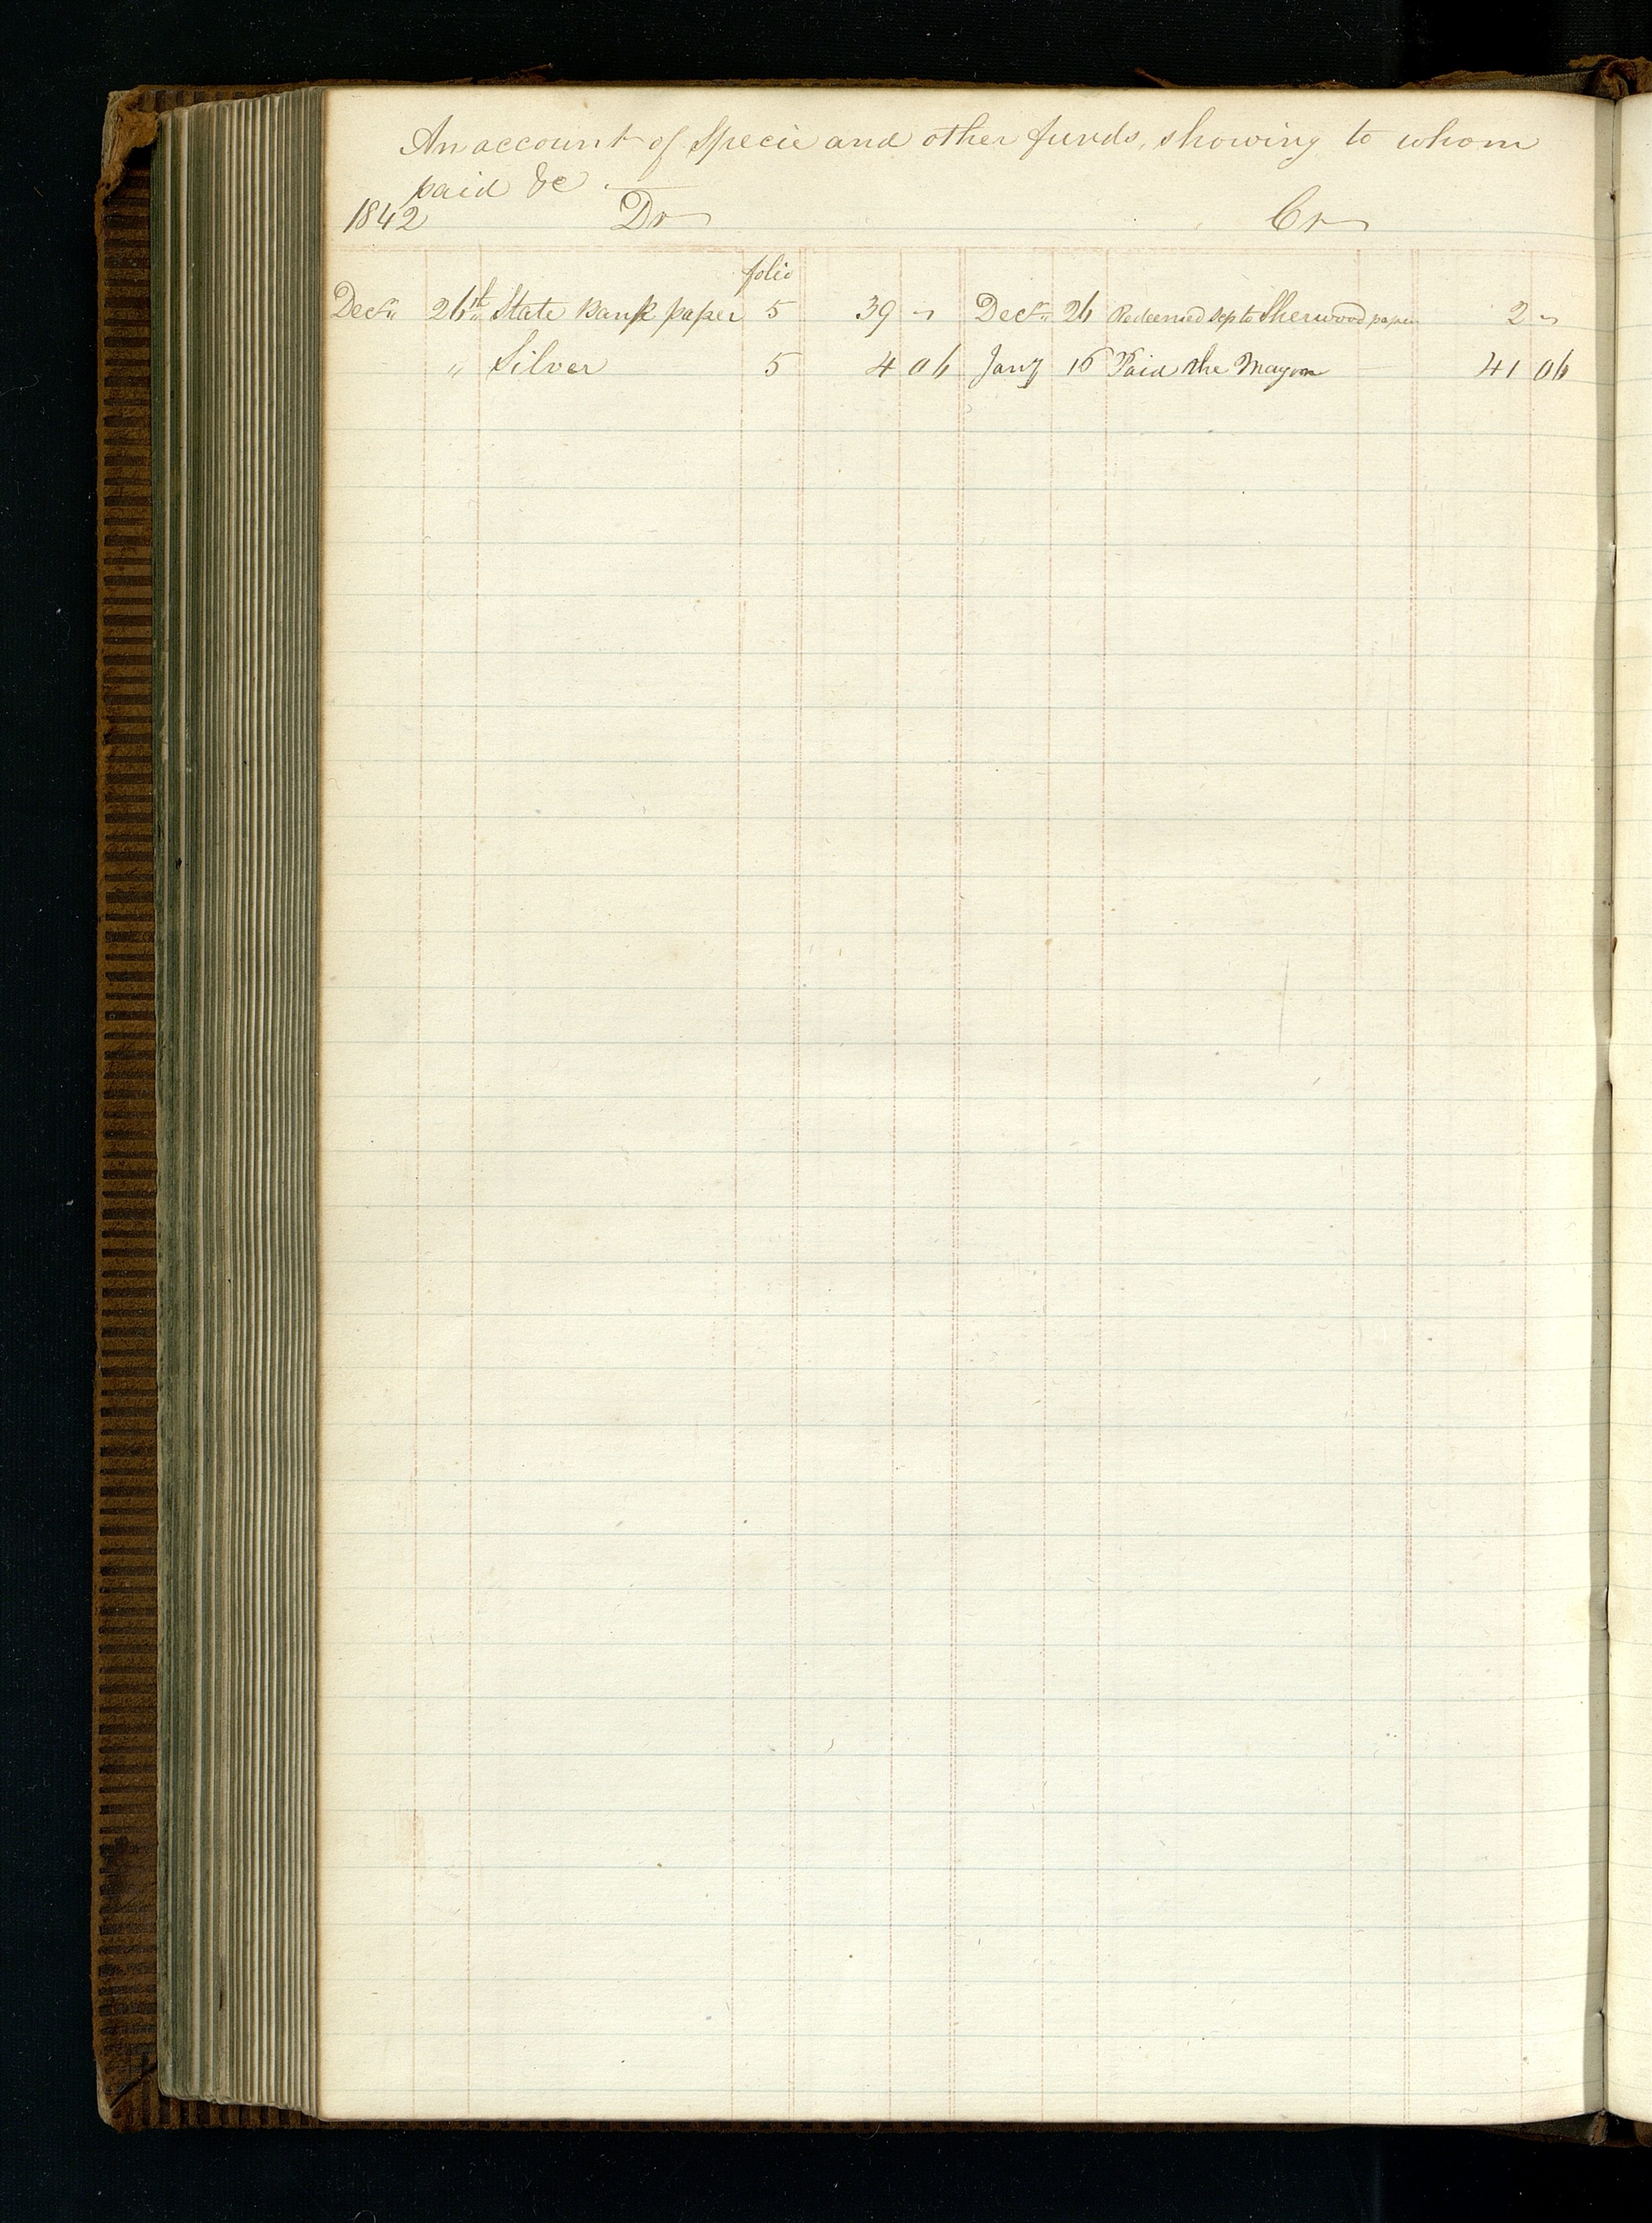 An account of Specie and other funds, showing to whom
paid &c.
1842 Dr Cr
folio
Decr 26th State Bank paper 5 39 - Decr 26 Redeemed Sherwood paper 2 -
" Silver 5 4 06 Jany 16 Paid the Mayor 41 06